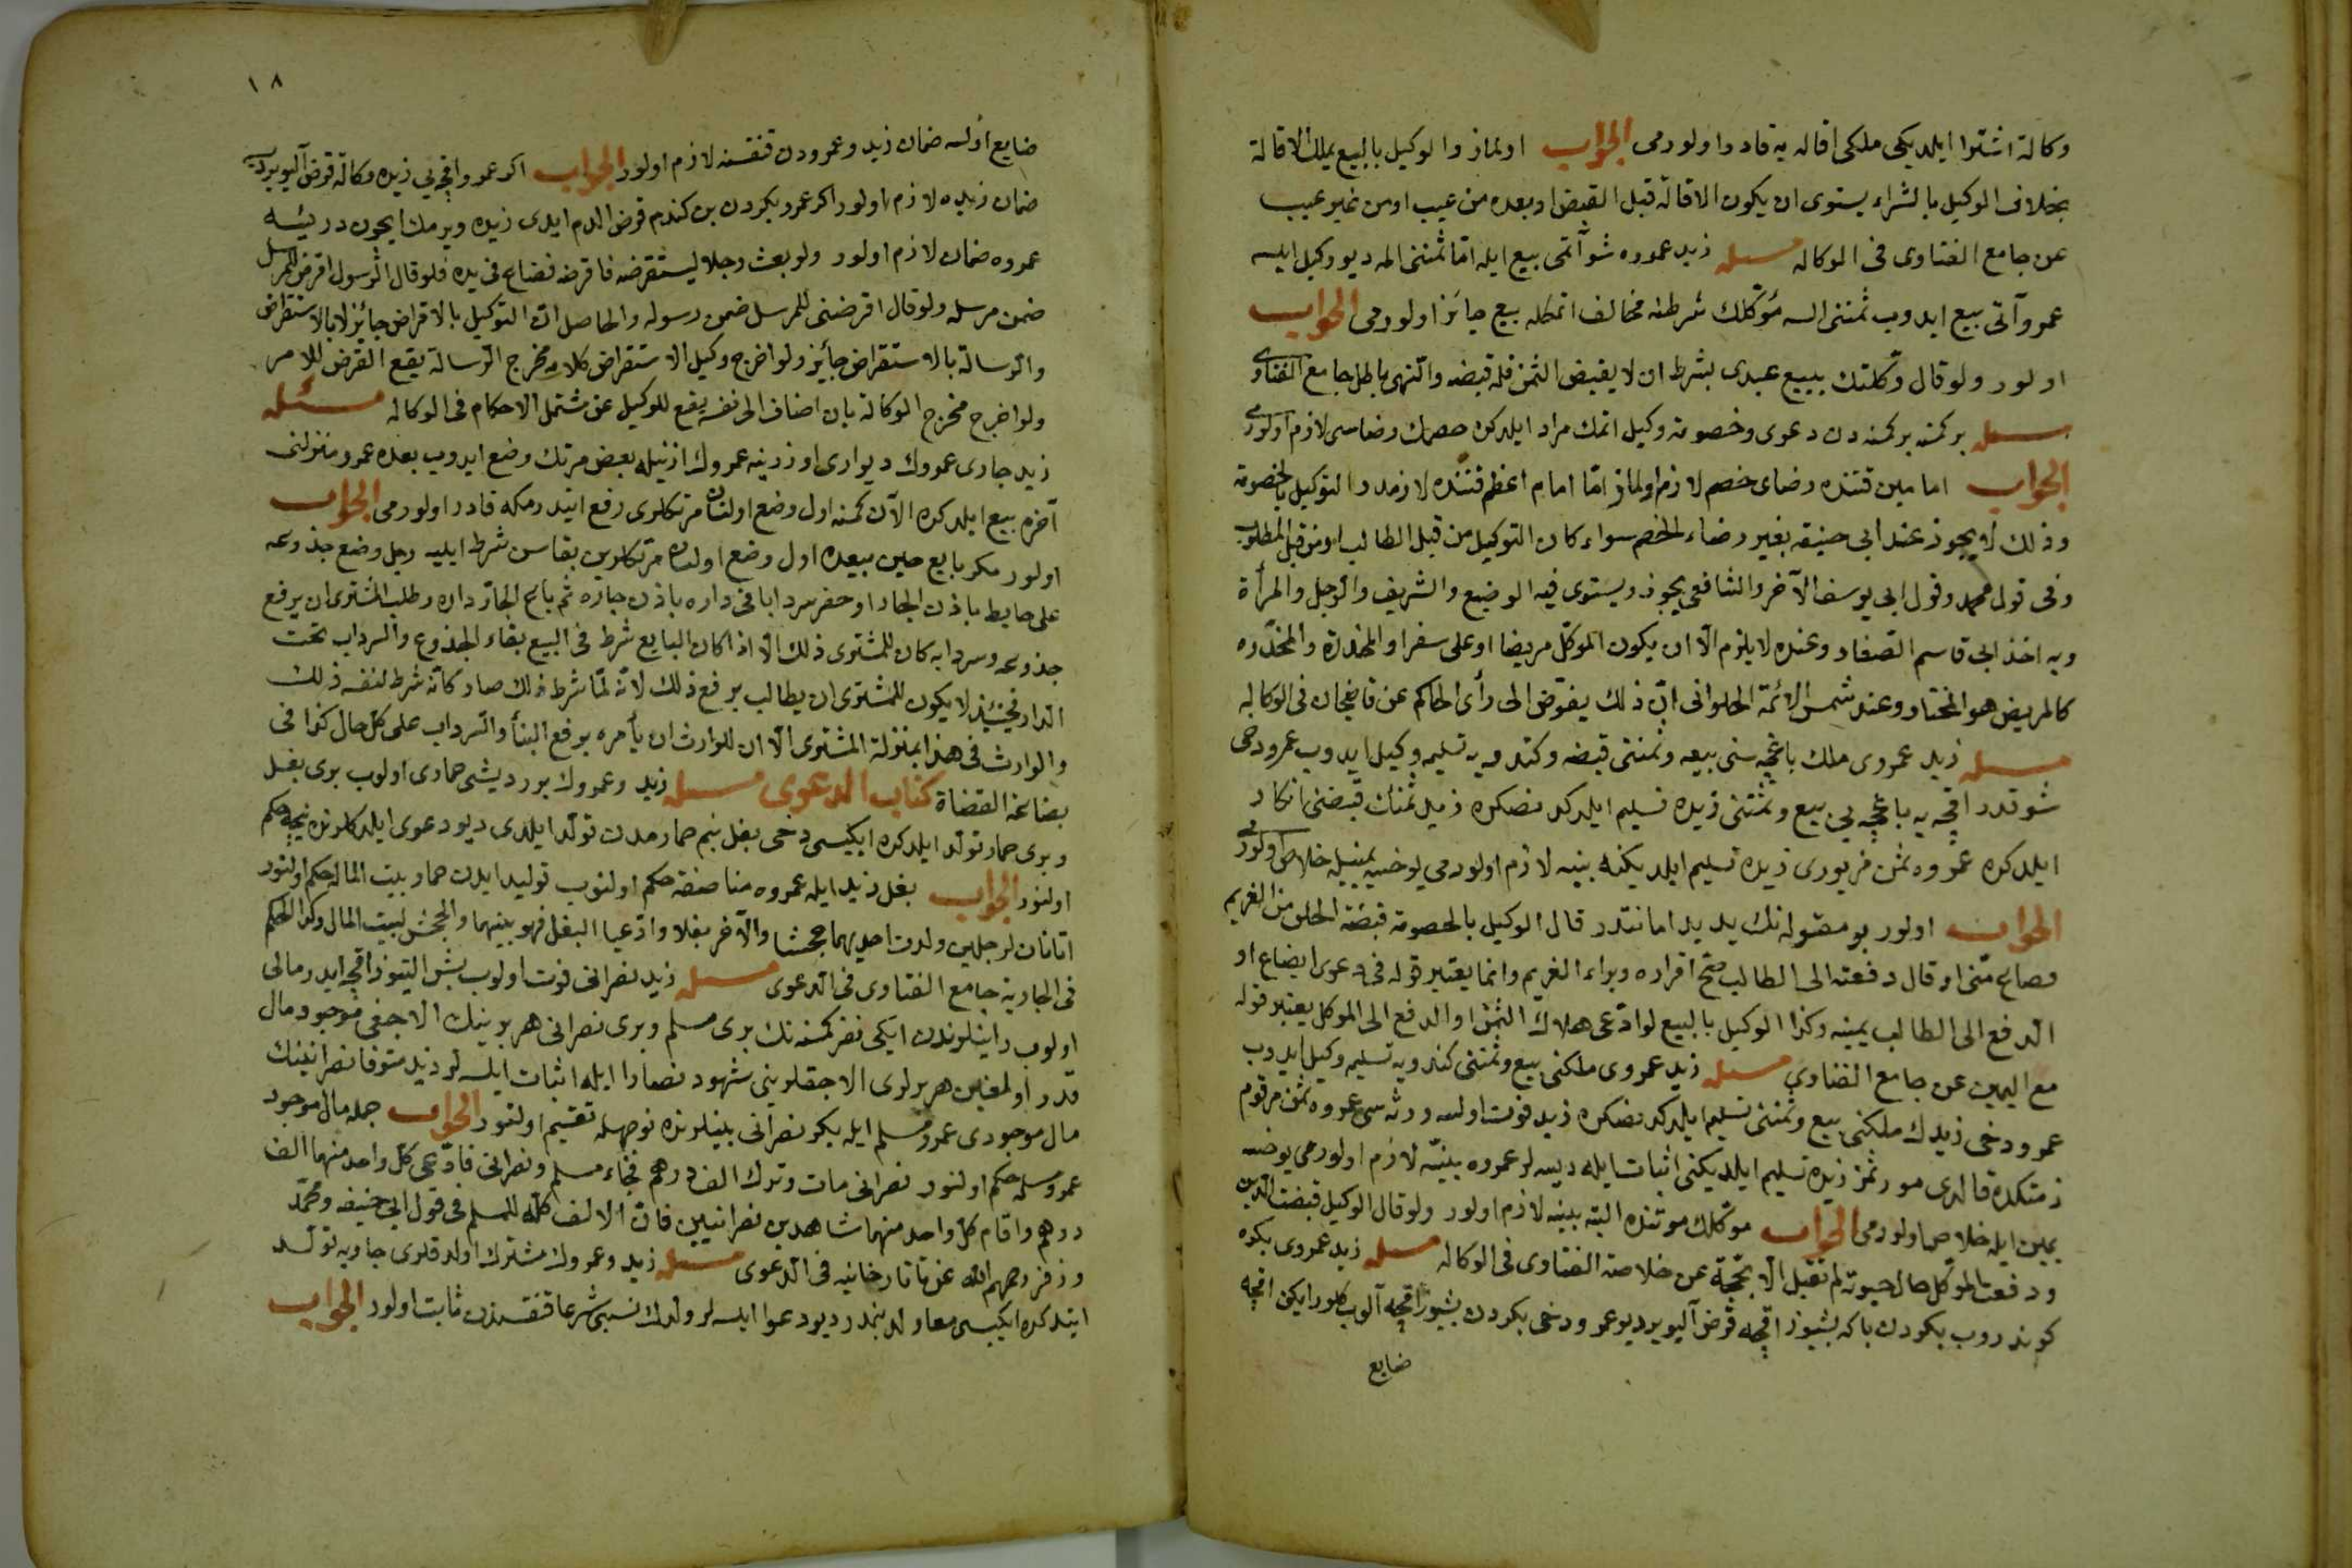 وكالة اشترا ايلديكى ملكى اقاله يه قادر اولورمى الجواب اولماز والوكيل بالبيع يملك الاقالة
بخلاف الوكيل بالشراء يستوى ان يكون الاقالة قبل القبض او بعده من عيب او من غير عيب
عن جامع الفتاوى فى الوكاله مسئله زيد عمروه شو آتمى بيع ايله اما ثمننى اله ديو وكيل ايلسه
عمرو آتى بيع ايدوب ثمننى السه مؤكلك شرطنه مخالف اتمكله بيع جائز اولورمى الجواب
اولور ولو قال وكلتك ببيع عبدى بشرط ان لا يقبض الثمن فله قبضه والنهى باطل جامع الفتاوى
مسئله بر كمنه بر كمنه دن دعوى وخصومته وكيل اتمك مراد ايلدكده خصمك رضاسى لازم اولورمى
الجواب امامين قتنده رضاى خصم لازم اولماز اما امام اعظم قتنده لازمدر التوكيل بالخصومة
وذلك لا يجوز عند ابى حنيفه بغير رضاء الخصم سواء كان التوكيل من قبل الطالب او من قبل المطلوب
وفى قول محمد وقول ابى يوسف الآخر والشافعى يجوز ويستوى فيه الوضيع والشريف والرجل والمرأة
وبه اخذ ابى قاسم الصفار وعنده لا يلزم الا ان يكون الموكل مريضا او على سفر او المخدرة والمخدره
كالمريض هو المختار وعند شمس الائمة الحلوانى ان ذلك يفوض الى رأى الحاكم عن قاضيخان فى الوكاله
مسئله زيد عمروى ملك باغچه سنى بيعه وثمننى قبضه وكندويه تسليمه وكيل ايدوب عمرو دخى
شو قدر اقچه يه باغچه يى بيع وثمننى زيده تسليم ايلدكدنصكره زيد ثمنك قبضنى انكار
ايلدكده عمروه ثمن مزبورى زيده تسليم ايلديكنه بينه لازم اولورمى يوخسه يمينيله خلاص اولورمى
الجواب اولور بو مقوله نك يدى يد امانتدر قال الوكيل بالخصومة قبضة الحق من الغريم
وضاع منى او قال دفعته الى الطالب صح اقراره وبراء الغريم وانما يعتبر قوله فى دعوى الضياع او
الدفع الى الطالب يمينه وكذا الوكيل بالبيع لو ادعى هلاك الثمن او الدفع الى الموكل يعتبر قوله
مع اليمين عن جامع الفتاوى مسئله زيد عمروى ملكنى بيع وثمننى كندويه تسليمه وكيل ايدوب
عمرو دخى زيدك ملكنى بيع وثمننى تسليم ايلدكدنصكره زيد فوت اولسه ورثه سى عمروه ثمن مرقوم
ذمتكده قالدى مورثمز زيده تسليم ايلديكنى اثبات ايله ديسه لر عمروه بينه لازم اولورمى يوخسه
يمين ايله خلاص اولورمى الجواب موكلك موتنده البته بينه لازم اولور ولو قال الوكيل قبضت الدين
ودفعت للموكل حال حيوته لم تقبل الا بحجة عن خلاصة الفتاوى فى الوكاله مسئله زيد عمروى بكره
كوندروب بكردن باكه بشيوز اقچه قرض آليوير ديو عمرو دخى بكردن بشيوز اقچه آلوب كلورايكن اقچه
ضايع
١٨
ضايع اولسه ضمان زيد وعمرودن قنقسنه لازم اولور الجواب اكر عمرو اقچه يى زيده وكالة قرض آليويردى
ضمان زيده لازم اولور اكر عمرو بكردن بن كندم قرض الدم ايدى زيده ويرمك ايچون دريسه
عمروه ضمان لازم اولور ولو بعث رجلا ليستقرضه فاقرضه فضاع فى يده فلو قال الرسول اقرض للمرسل
ضمن مرسله ولو قال اقرضنى للمرسل ضمن رسوله والحاصل ان التوكيل بالاقراض جايز لا بالاستقراض
والرسالة بالاستقراض جايز ولو اخرج وكيل الاستقراض كلامه مخرج الرسالة يقع القرض للامر
ولو اخرج مخرج الوكالة بان اضاف الى نفسه يقع للوكيل عن مشتمل الاحكام فى الوكاله مسئله
زيد جارى عمروك ديوارى اوزرينه عمروك اذنيله بعض مرتك وضع ايدوب بعده عمرو منزلنى
آخره بيع ايلدكده الآن كمنه اول وضع اولنان مرتكلرى رفع ايتدرمكه قادر اولورمى الجواب
اولور مكر بايع حين بيعده اول وضع اولنان مرتكلرين بقاسن شرط ايليه رجل وضع جذوعه
على حايط باذن الجار او حفر سردابا فى داره باذن جاره ثم باع الجار داره وطلب المشترى ان يرفع
جذوعه وسردابه كان للمشترى ذلك الا اذا كان البايع شرط فى البيع بقاء الجذوع والسرداب تحت
الدار فحينئذ لا يكون للمشترى ان يطالب برفع ذلك لانه لما شرط ذلك صار كانه شرط لنفسه ذلك
والوارث فى هذا بمنزلة المشترى الا ان للوارث ان يأمره برفع البناء والسرداب على كل حال كذا فى
بضاعة القضاة كتاب الدعوى مسئله زيد وعمروك بر ديشى حمارى اولوب برى بغل
وبرى حمار تولد ايلدكده ايكيسى دخى بغل بنم حمارمدن تولد ايلدى ديو دعوى ايلدكلرنده نيجه حكم
اولنور الجواب بغل زيد ايله عمروه مناصفة حكم اولنوب توليد ايدن حمار بيت الماله حكم اولنور
اتانان لرجلين ولدت احديهما جحشا والآخر بغلا وادعيا البغل فهو بينهما والجحش لبيت المال وكذا الحكم
فى الجارية جامع الفتاوى فى الدعوى مسئله زيد نصرانى فوت اولوب بش التيوز اقچه ايدر مالى
اولوب داينلرندن ايكى نفر كمسنه نك برى مسلم وبرى نصرانى هر برينك الاجغى موجود مال
قدر اولمغين هر برلرى الاجقلرينى شهود نصارا ايله اثبات ايلسه لر زيد متوفا نصرانينك
مال موجودى عمرو مسلم ايله بكر نصرانى بينلرنده نوجهله تقسيم اولنور الجواب جمله مال موجود
عمرو مسلمه حكم اولنور نصرانى مات وترك الف درهم فجاء مسلم ونصرانى فادعى كل واحد منهما الف
درهم واقام كل واحد منهما شاهدين نصرانيين فان الالف كله للمسلم فى قول ابى حنيفه ومحمد
وزفر رحمهم الله عن تاتارخانيه فى الدعوى مسئله زيد وعمروك مشترك اولدقلرى جاريه تولد
ايتدكده ايكيسى معا ولد بنمدر ديو دعوا ايلسه لر ولدك نسبى شرعا قنقسندن ثابت اولور الجواب